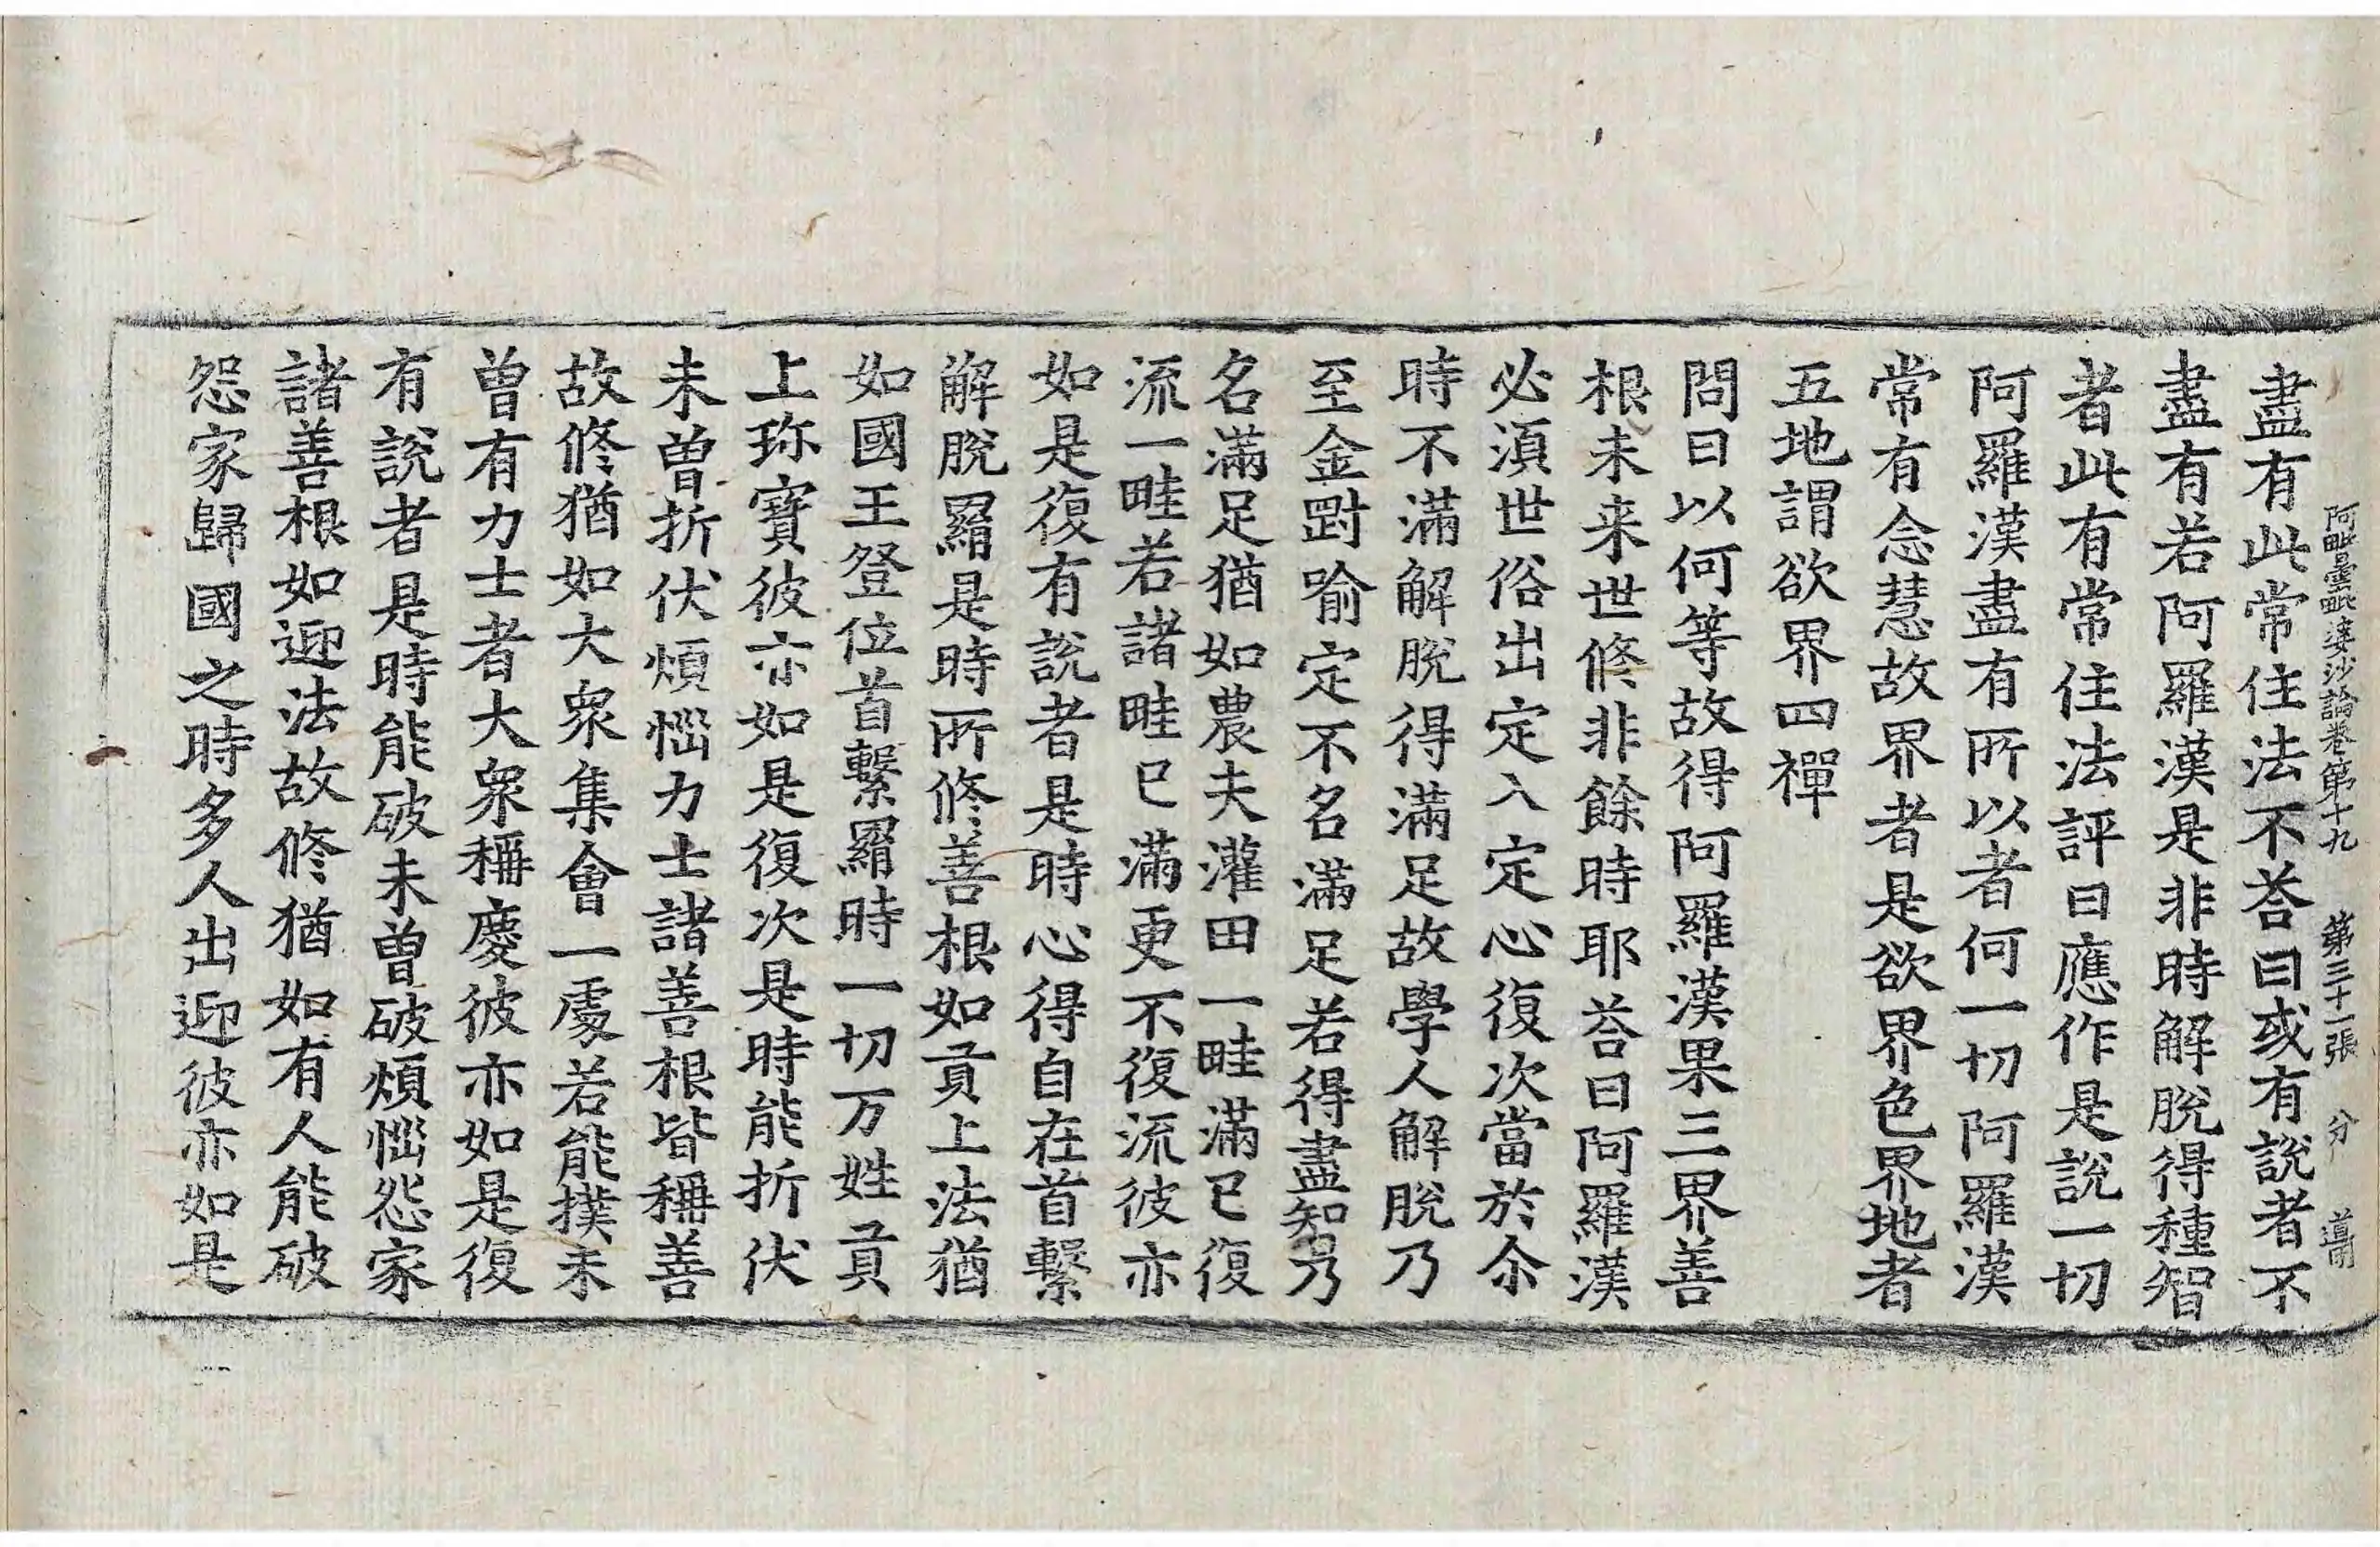 阿毗曇毗婆沙論卷第十九 第三十一張 分 噵
盡有此常住法不荅曰或有說者不
盡有若阿羅漢是非時解脫得種智
者此有常住法評曰應作是說一切
阿羅漢盡有所以者何一切阿羅漢
常有念慧故界者是欲界色界地者
五地謂欲界四禪
問曰以何等故得阿羅漢果三界善
根未来世修非餘時耶荅曰阿羅漢
必須世俗出定入定心復次當於尒
時不滿解脫得滿足故學人解脫乃
至金剛喻定不名滿足若得盡知乃
名滿足猶如農夫灌田一畦滿已復
流一畦若諸畦已滿更不復流彼亦
如是復有說者是時心得自在首繫
解脫羂是時所修善根如貢上法猶
如國王登位首繫羂時一切万姓貢
上珎寶彼亦如是復次是時能折伏
未曾折伏煩惱力士諸善根皆稱善
故修猶如大衆集會一處若能撲未
曾有力士者大衆稱慶彼亦如是復
有說者是時能破未曾破煩惱怨家
諸善根如迎法故修猶如有人能破
怨家歸國之時多人出迎彼亦如是